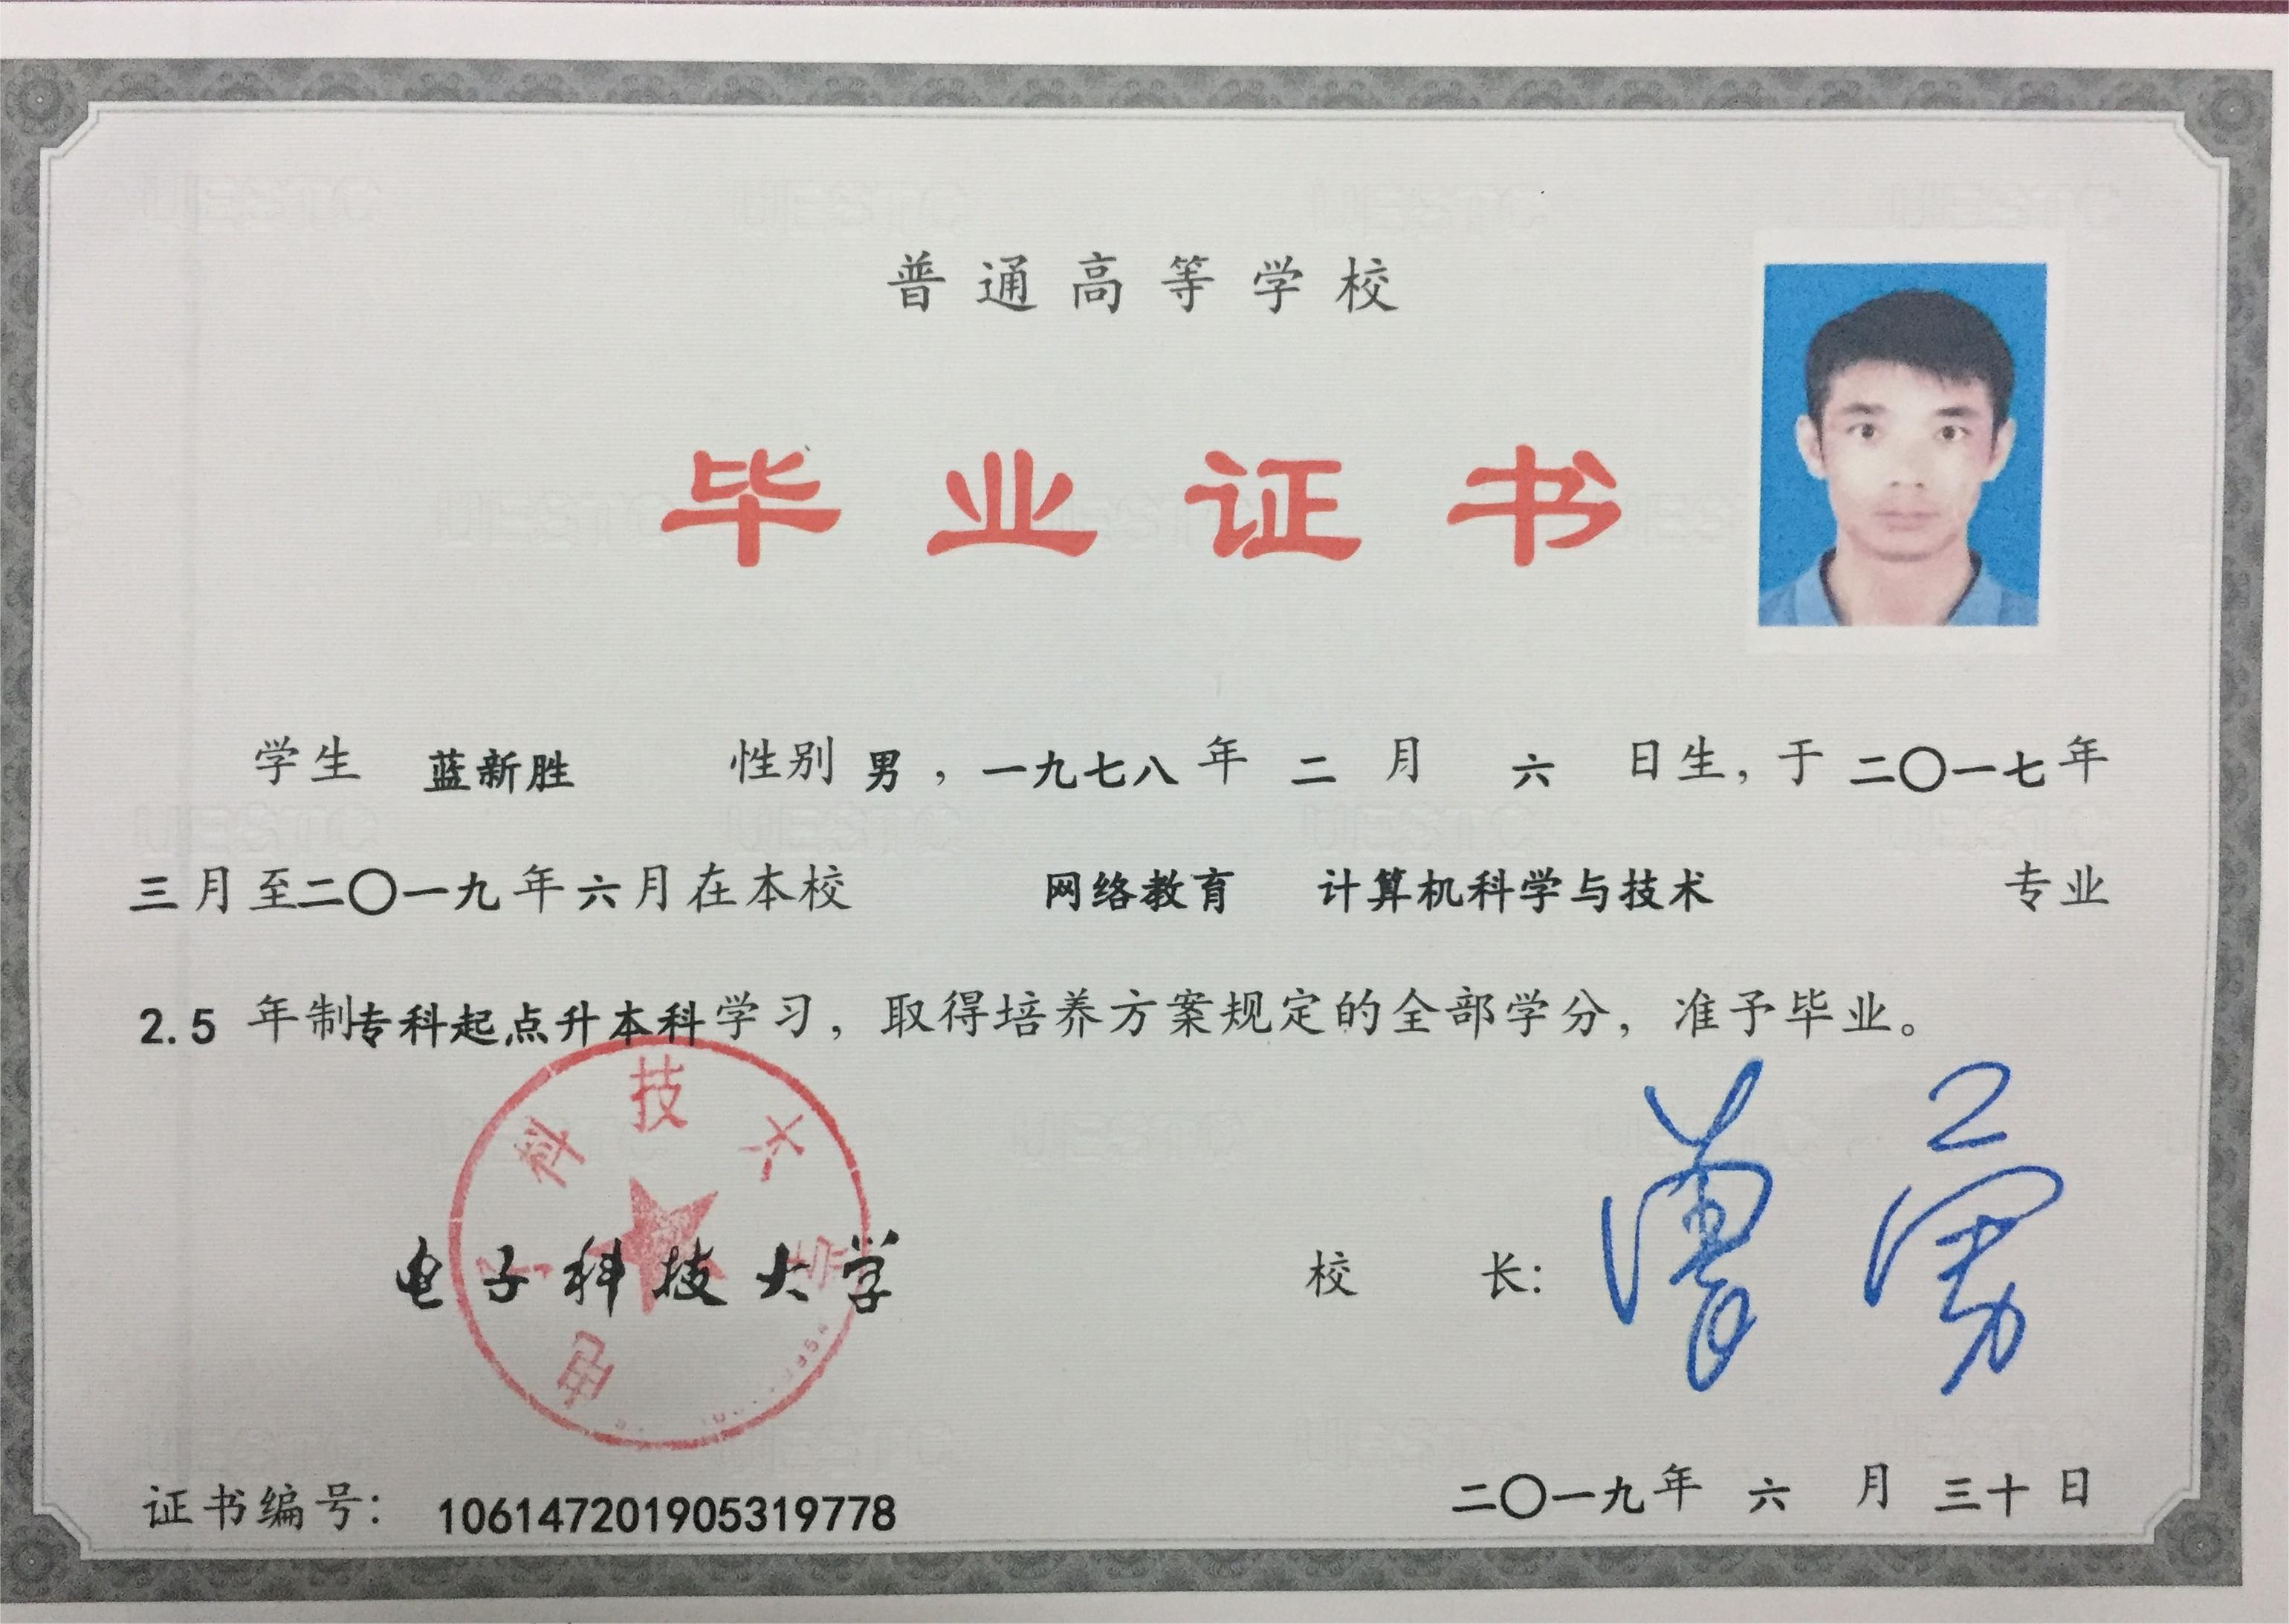 普通高等学校
毕业证书
学生 蓝新胜 性别 男，一九七八年 二 月 六 日生，于 二〇一七年
三月至二〇一九年六月在本校 网络教育 计算机科学与技术 专业
2.5 年制专科起点升本科学习，取得培养方案规定的全部学分，准予毕业。
电子科技大学
电子科技大学
校 长：曾勇
证书编号：106147201905319778
二〇一九年 六 月 三十 日
UESTC